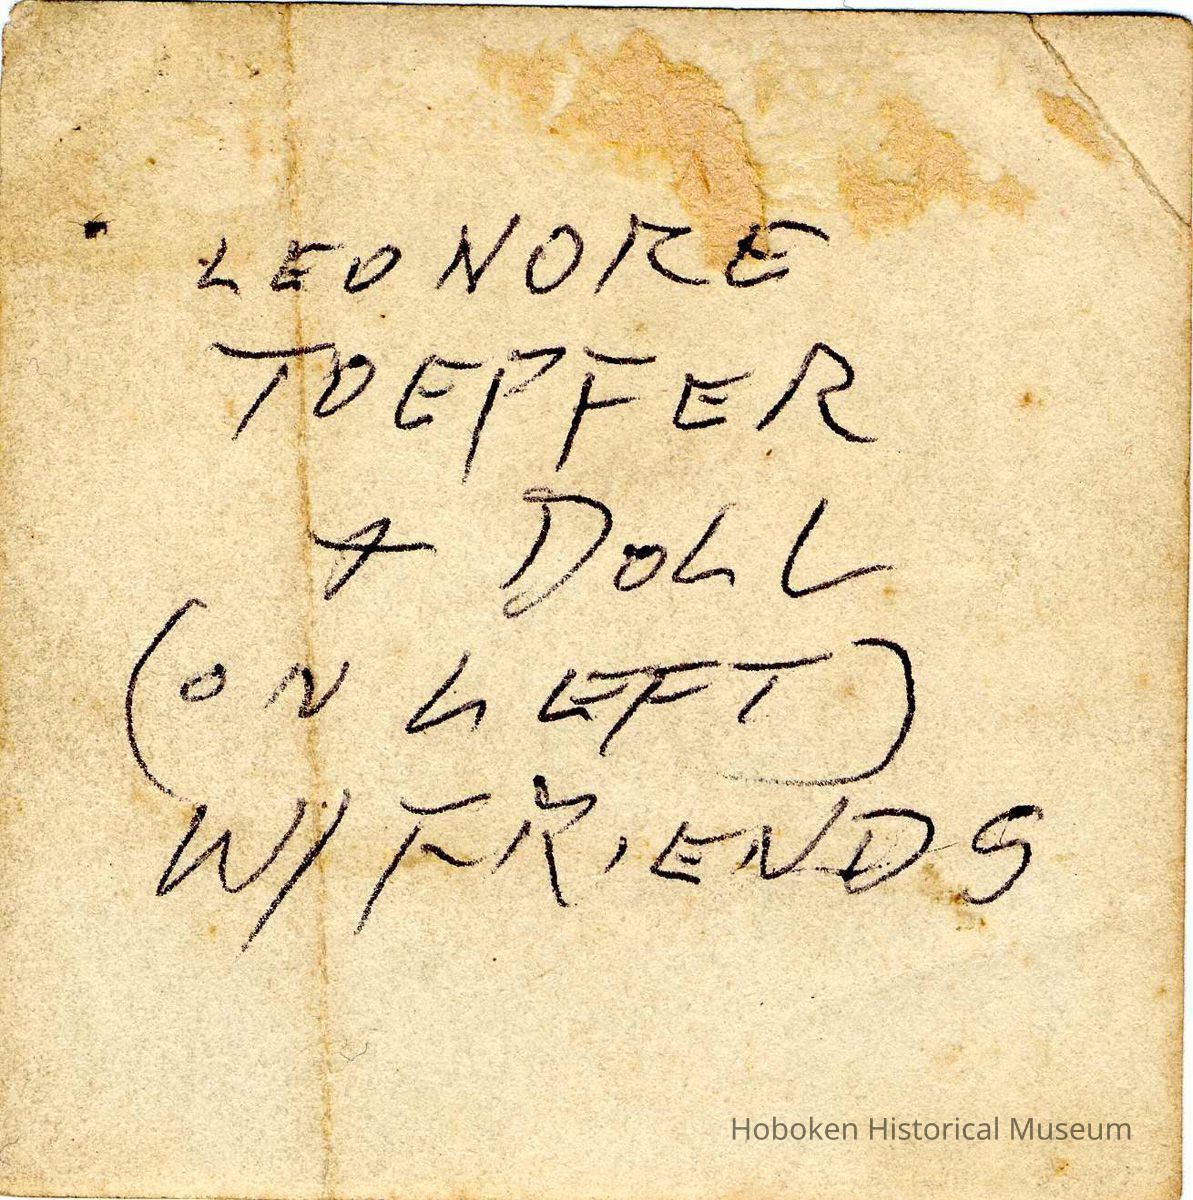 LEONORE
TOEPFER
+ DOLL
(ON LEFT)
W/ FRIENDS
Hoboken Historical Museum